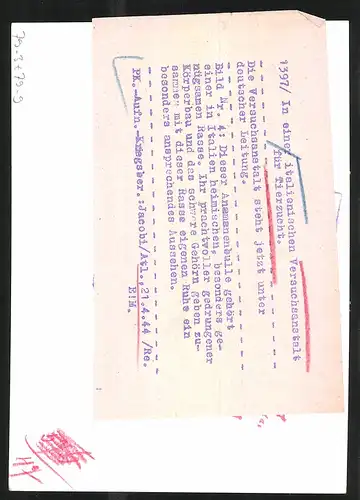 1397/ In einer italienischen Versuchsanstalt
für Tierzucht.
Die Versuchsanstalt steht jetzt unter
deutscher Leitung.
Bild Nr. 4: Dieser Ammanenbulle gehört
einer in Italien heimischen, besonders ge-
nügsamen Rasse. Ihr prachtvoller gedrungener
Körperbau und das schwere Gehörn geben zu-
sammen mit dieser Rasse eigenen Ruhe ein
besonders ansprechendes Aussehen.
PK.-Aufn. Kriegsber.:Jacobi/Atl.,21.4.44 /Re.
E!M.